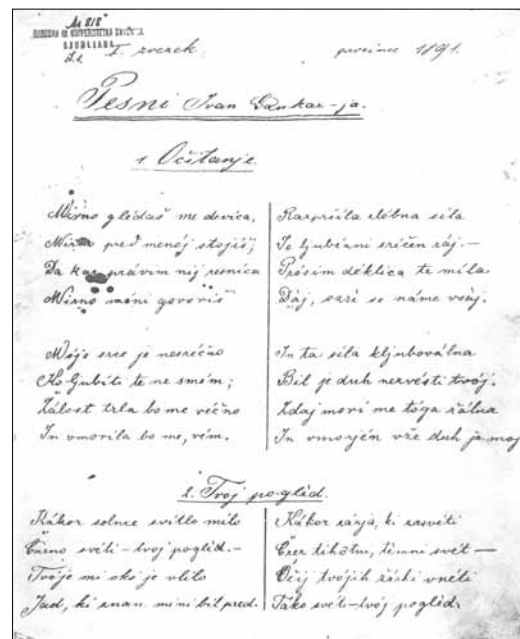 Ms 818
NARODNA IN UNIVERZITETNA KNJIŽNICA
LJUBLJANA
I. zvezek.
prosinec 1891.
Pesni Ivan Cankar-ja.
1. Očitanje.
Mirno glédaš me devica,
Mirno pred menój stojíš,
Da kar právim nij resnica
Mirno méni govoríš
Móje srce je nesréčno
Ko ljubíti te ne smém;
Žálost trla bo me véčno
In vmoríla bo me, vém.
Razpršíla zlóbna síla
Je ljubézni sréčen ráj. —
Prósim déklica te míla
Dáj, ozrí se náme vsáj.
In ta síla kljuboválna
Bil je duh nezvésti tvój.
Zdaj morí me tóga žálna
In vmorjén vže duh je moj
2. Tvoj pogléd.
Kákor solnce svitlo milo
Čarno svéti - tvoj pogléd. —
Tvóje mi okó je vlílo
Jad, ki znan mi ni bil pred.
Kákor zárja, ki zasvéti
Črez tihótni, témni svét —
Očíj tvójih žárki vnéti
Táko svéti - tvój pogléd.